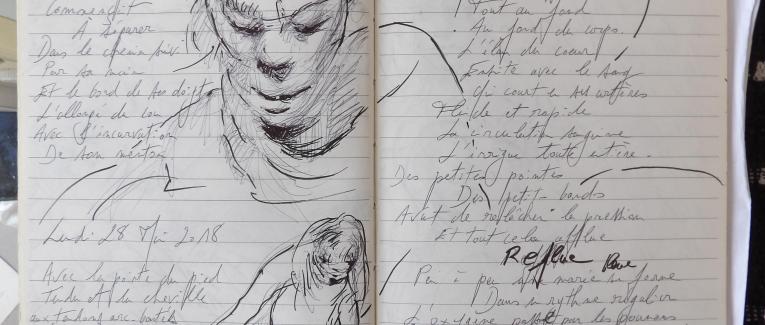 Commençait
À séparer
Dans le chemin suivi
Par sa main
Et le bord de ses doigts
L'allongé du cou
Avec l'incurvation
De son menton
Lundi 28 Mai 2018
Avec la pointe du pied
Tendu et du cheville
Tout au fond
Au fond du corps.
L'élan du coeur
Ensuite avec le sang
Qui court en ses artères
Fluide et rapide
La circulation sanguine
L'irrigue toute entière.
Des petites pointes
Des petit-bonds
Avant de relâcher la pression
Et tout cela afflue
Reflue
Peu à peu sa marée sa forme
Dans un rythme régulier
par les poumons